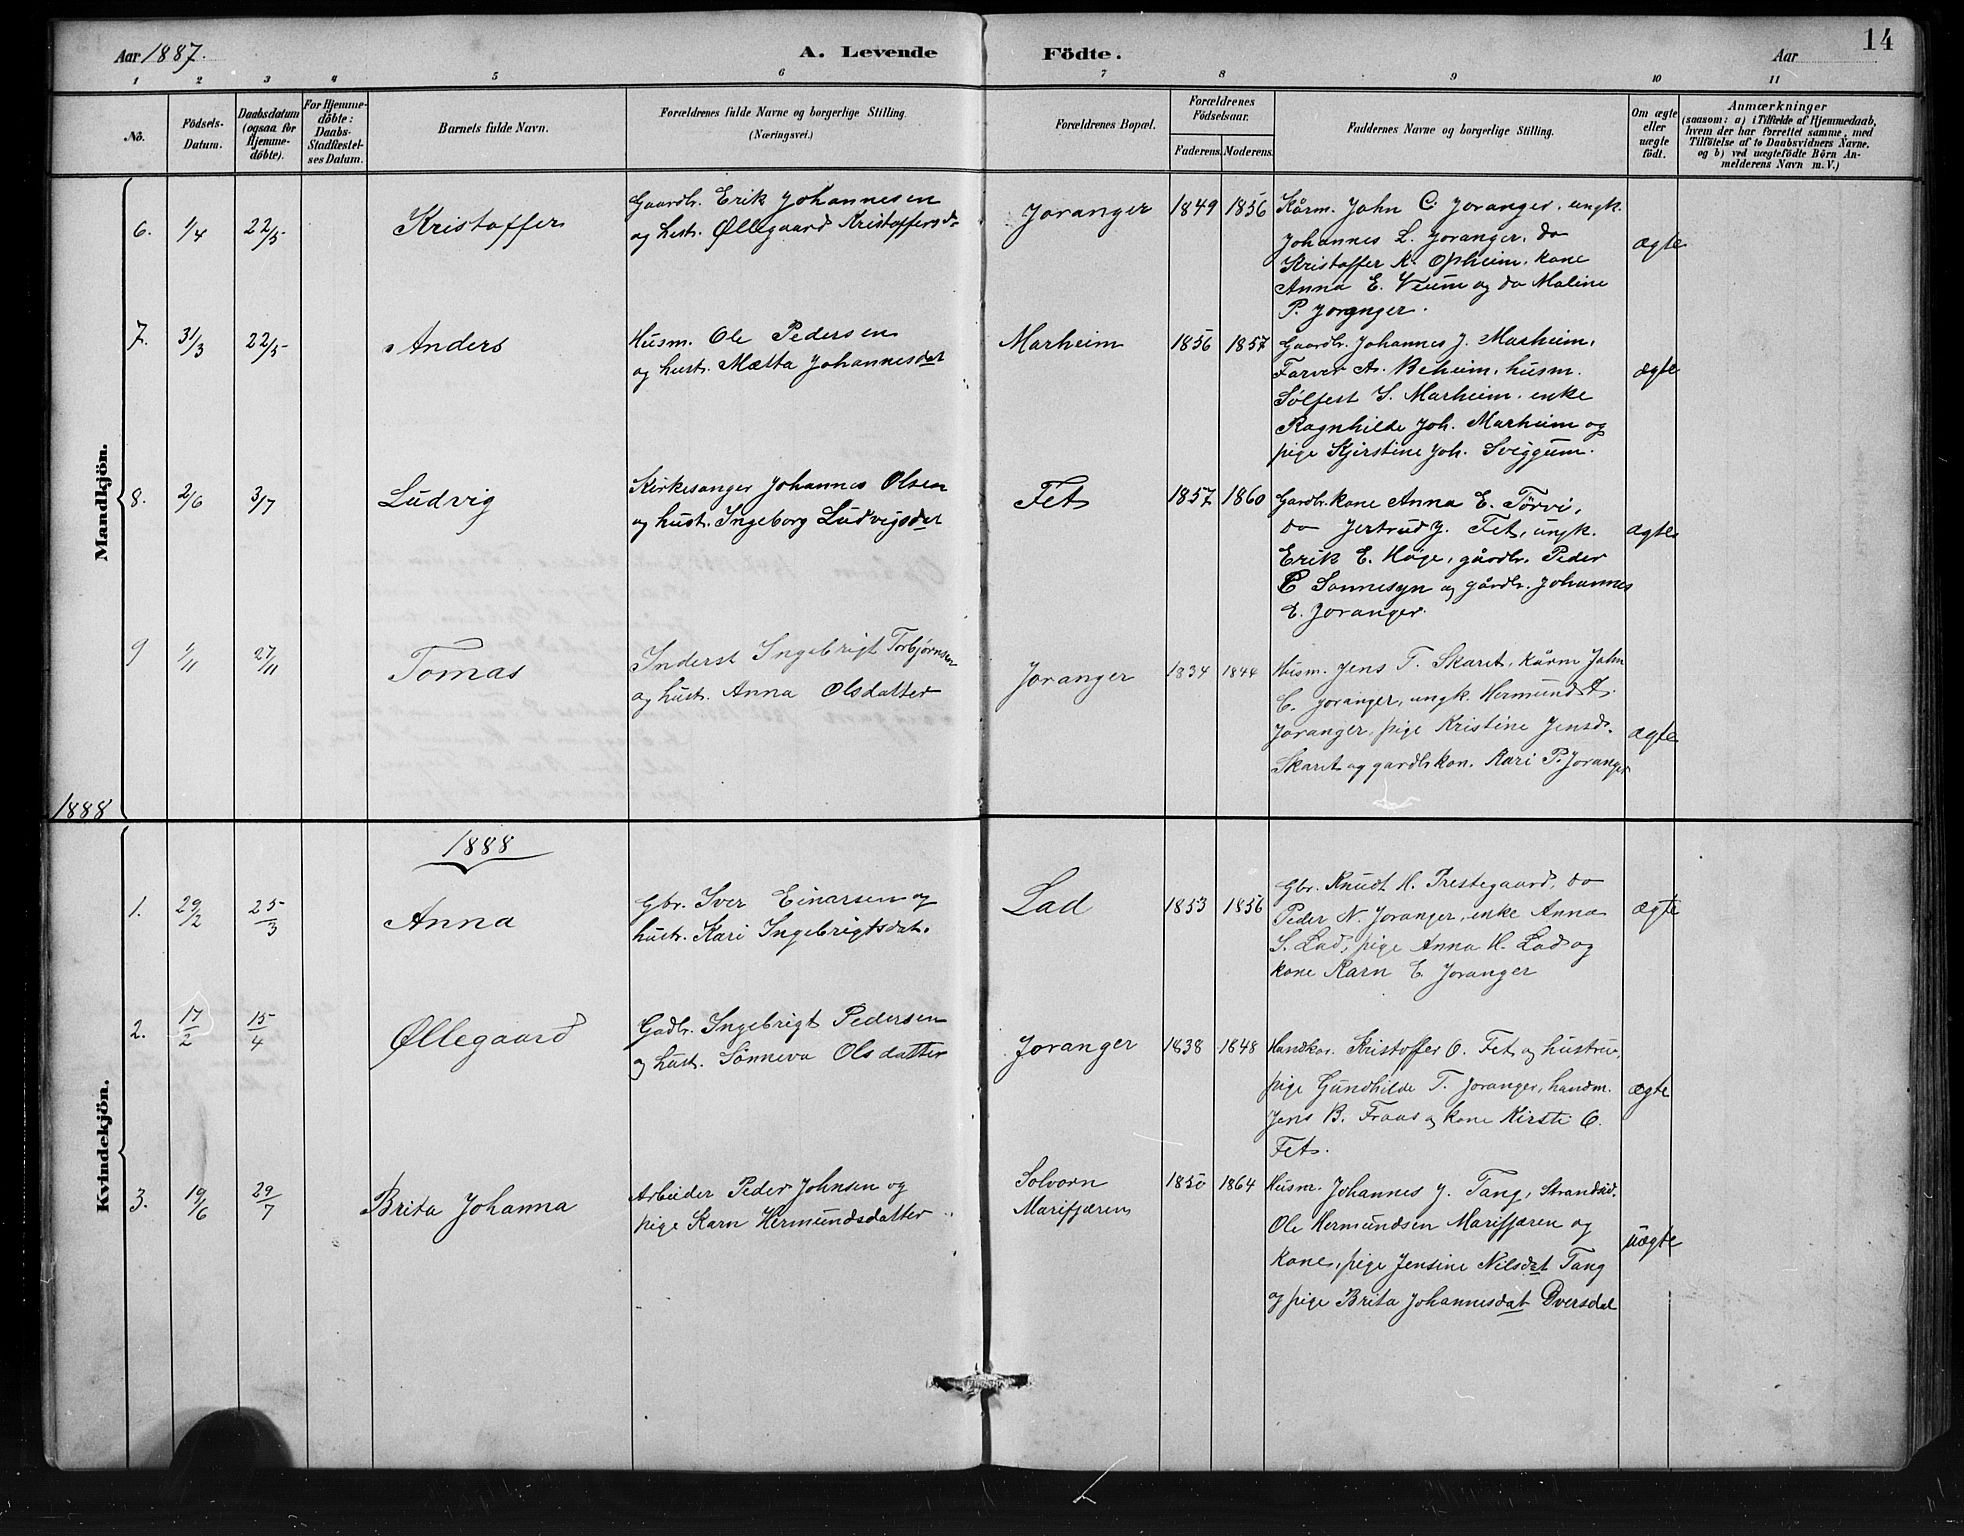 14
Aar 1887. A. Levende Födte. Aar
1 2 3 4 5 6 7 8 9 10 11
Nö. Födsels-Datum. Daabsdatum (ogsaa for Hjemme-döbte). For Hjemme-döbte: Daabs-Stadfæstel-ses Datum. Barnets fulde Navn. Forældrenes fulde Navne og borgerlige Stilling. (Næringsvei.) Forældrenes Bopæl. Forældrenes Födselsaar. Faderens. Moderens. Faddernes Navne og borgerlige Stilling. Om ægte eller uægte födt. Anmærkninger
(saasom: a) i Tilfælde af Hjemmedaab,
hvem der har forrettet samme, med
Tilföielse af to Daabsvidners Navne.
og b) ved uægtefödte Börn An-
melderens Navn m. V.)
Mandkjön.
6. 1/4 22/5 Kristoffer Gaardb. Erik Johannesen Joranger 1849 1856 Kårm. John C. Joranger, ungk.
og hust. Øllegaard Kristoffersd.
Johannes L. Joranger, do
Kristoffer K. Opheim, kone ægte
Anna E. Veum og do Maline
P. Joranger.
7. 31/3 22/5 Anders Husm. Ole Pedersen Marheim 1856 1857 Gaardb. Johannes J. Marheim,
og hust. Mætta Johannesdat
Farver A. Beheim, husm. ægte
Sølfest S. Marheim, enke
Ragnhilde Joh. Marheim og
pige Kjerstine Joh. Sviggum.
8. 2/6 3/7 Ludvig Kirkesanger Johannes Olsen Fet 1857 1860 Gardbr.kone Anna E. Tørvi,
og hust. Ingeborg Ludvigsdat
do Jertrud J. Fet, ungk. ægte
Erik E. Høje, gårdbr. Peder
P Sonnesyn og gårdbr. Johannes
E. Joranger.
9 1/11 27/11 Tomas Inderst Ingebrigt Torbjørnsen Joranger 1834 1844 Husm. Jens T. Skaret, kårm John
og hust. Anna Olsdatter
C. Joranger, ungk. Hermund A.
Joranger, pige Kristine Jensd. ægte
Skaret og gardbkon. Kari P. Joranger
1888
1888
Kvindekjön.
1. 29/2 25/3 Anna Gbr. Iver Einarsen og Lad 1853 1856 Gbr. Knudt H. Prestegaard, do
hust. Kari Ingebrigtsdat.
Peder N. Joranger, enke Anna ægte
S. Lad, pige Anna H. Lad og
kone Karn E. Joranger
2. 17/2 15/4 Øllegaard Gadb. Ingebrigt Pedersen Joranger 1838 1848 Handkar. Kristoffer O. Fet og hustru,
og hust. Sønneva Olsdatter
pige Gundhilde T. Joranger, handm. ægte
Jens B. Fraas og kone Kirsti O.
Fet.
3. 19/6 29/7 Brita Johanna Arbeider Peder Johnsen og Solvorn 1850 1864 Husm. Johannes J. Tang, Strandsid.
pige Karn Hermundsdatter Marifjæren
Ole Hermundsen Marifjæren og uægte
kone, pige Jensine Nilsdat Tang
og pige Brita Johannesdat Dversdal